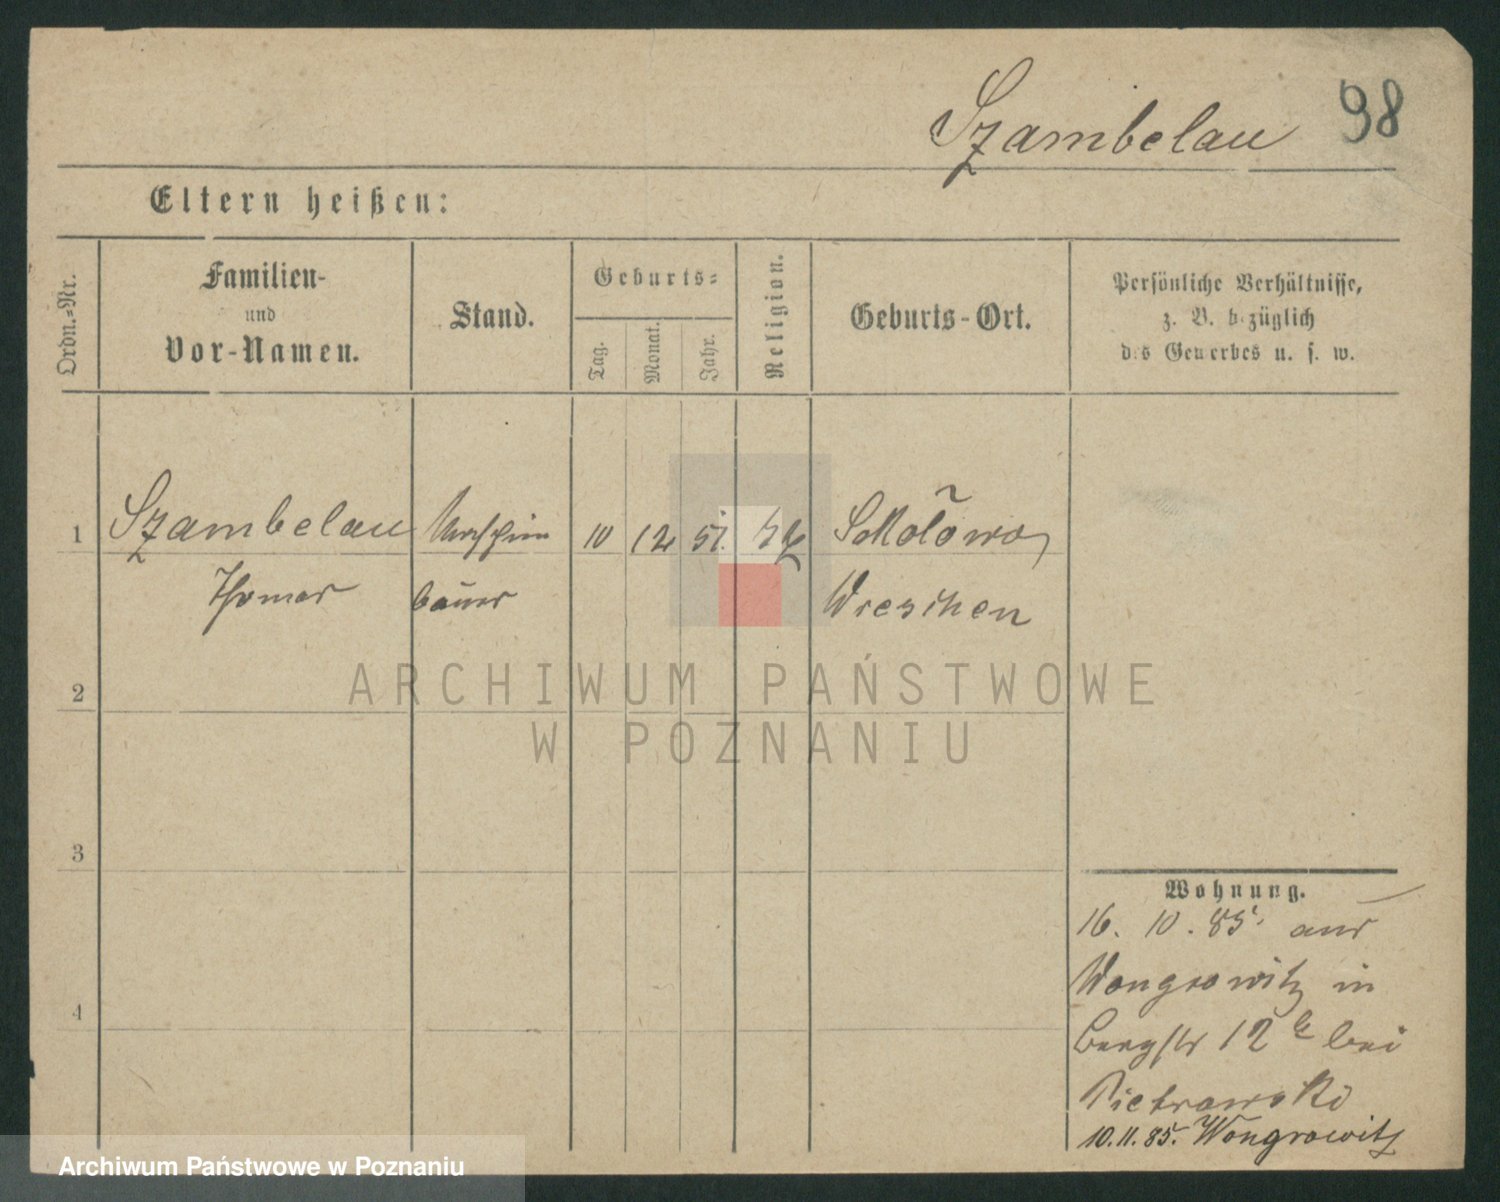 Szambelan 98
Eltern heißen:
Ordn.-Nr.
Familien-
und
Vor-Namen.
Stand.
Geburts-
Tag.
Monat.
Jahr.
Religion.
Geburts-Ort.
Persönliche Verhältnisse,
z. B. bezüglich
des Gewerbes u. s. w.
1 Szambelan Maschinen 10 12 51. Sokolowo
Thomas bauer Wreschen
2
3
4
Wohnung.
16. 10. 85 aus
Wongrowitz in
Bergstr 12 b bei
Pietrowski
10.11.85. Wongrowitz
ARCHIWUM PAŃSTWOWE
W POZNANIU
Archiwum Państwowe w Poznaniu